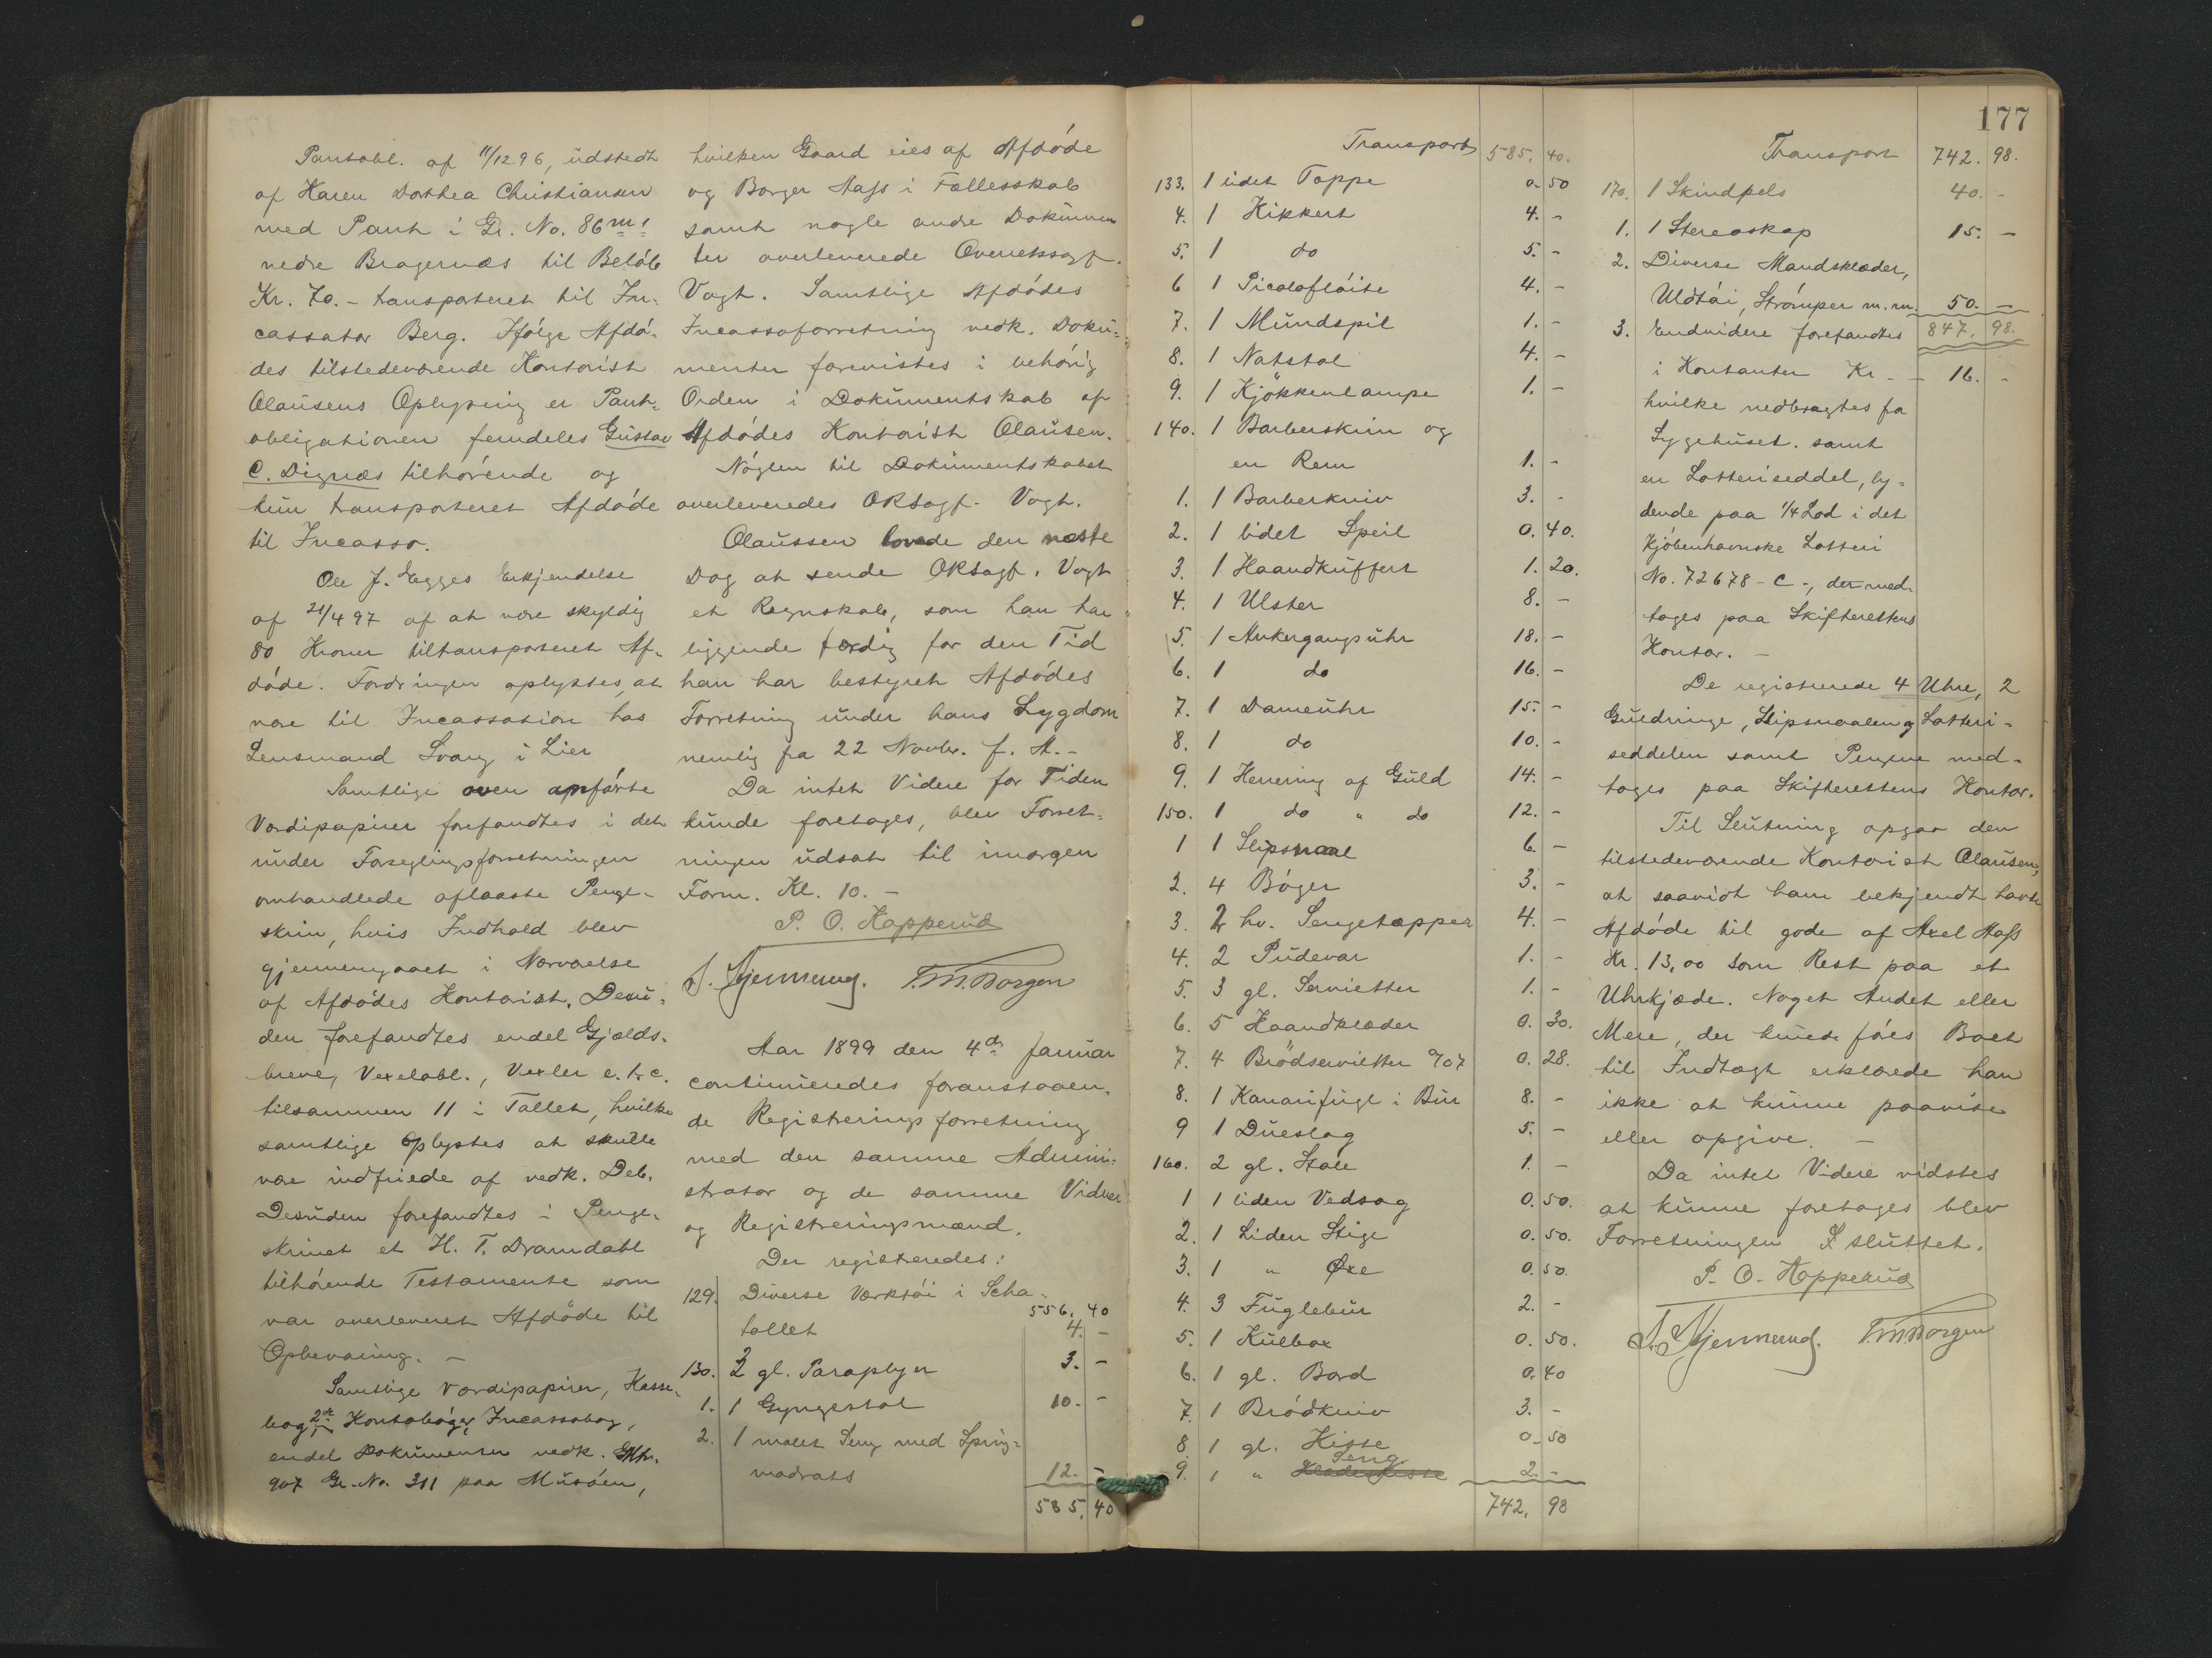 Pantobl. af 11/12 96, udstedt
af Karen Dorthea Christiansen
med Pant i Gr. No. 86 m.
nedre Bragernæs til Beløb
Kr. 70.- tansporteret til In-
cassator Berg. Ifølge Afdø-
des tilstedeværende Kontorist
Olausens Oplysning er Pant-
obligationen femdeles Gustav
C. Dignæs tilhørende og
kun transporteret Afdøde
til Incasso.
Ole J. Egges Erkjendelse
af 21/4 97 af at være skyldig
80 Kroner tiltransporteret Af-
døde. Fordringen oplystes, at
være til Incassation hos
Lensmand Svang i Lier
Samtlige oven anførte
Værdipapirer forefandtes i det
under Forseglingsforretningen
omhandlede aflaaste Penge-
skrin, hvis Indhold blev
gjennemgaaet i Nærværelse
af Afdødes Kontorist. Desu-
den forefandtes endel Gjælds-
breve, Vexelobl., Vexler e.t.c.
tilsammen 11 i Tallet, hvilke
samtlige oplystes at skulle
være indfriede af vedk. Deb.
Desuden forefandtes i Penge-
skrinet et H. T. Dramdahl
tilhørende Testamente som
var overleveret Afdøde til
Opbevaring. -
Samtlige Værdipapirer, Kasse-
bog, 2de Kontobøger, Incassobog,
endel Dokumenter vedk.
907 Gr. No. 311 paa Musøen,
hvilken Gaard eies af Afdøde
og Borger Aass i Fællesskab
samt nogle andre Dokumen
ter overleverede Overretssagf.
Vogt. Samtlige Afdødes
Incassoforretning vedk. Doku-
menter forevistes i behørig
Orden i Dokumentskab af
Afdødes Kontorist Olausen.
Nøglen til Dokumentskabet
overleveredes ORSagf. Vogt.
Olaussen lovede den næste
Dag at sende ORSagf. Vogt
et Regnskab, som han har
liggende færdig for den Tid
han har bestyret Afdødes
Forretning under hans Sygdom
nemlig fra 22 Novbr. f. A. -
Da intet Videre for Tiden
kunde foretages, blev Forret-
ningen udsat til imorgen
Form. Kl. 10. -
P. O. Hopperud
A. Gjermerud. T. M. Borgen
Aar 1899 den 4de Januar
continueredes foranstaaen-
de Registreringsforretning
med den samme Admini-
strator og de samme Vidner
og Registreringsmænd.
Der registreredes:
129. Diverse Værktøi i Scha-
556. 40
tollet 4. -
130. 2 gl. Paraplyer 3. -
1. 1 Gyngestol 10. -
2. 1 malet Seng med Spring-
madrats 12. -
585. 40
177
Transport 585. 40.
133. 1 lidet Tæppe 0. 50
4. 1 Kikkert 4. -
5. 1 do 5. -
6 1 Picolofløite 4. -
7. 1 Mundspil 1. -
8. 1 Natstol 4. -
9. 1 Kjøkkenlampe 1. -
140. 1 Barberskrin og
en Rem 1. -
1. 1 Barberkniv 3. -
2. 1 lidet Speil 0. 40.
3. 1 Haandkuffert 1. 20.
4. 1 Ulster 8. -
5. 1 Ankergangsuhr 18. -
6. 1 do 16. -
7. 1 Dameuhr 15. -
8. 1 do 10. -
9. 1 Herrering af Guld 14. -
150. 1 do " do 12. -
1 1 Slipsnaal 6. -
2. 4 Bøger 3. -
3. 2 hv. Sengetæpper 4. -
4. 2 Pudevar 1. -
5. 3 gl. Servietter 1. -
6. 5 Haandklæder 0. 30.
7. 4 Brødservietter %7 0. 28.
8. 1 Kanarifugl i Bur 8. -
9 1 Dueslag 5. -
160. 2 gl. Stole 1. -
1 1 liden Vedsag 0. 50.
2. 1 Liden Stige 0. 50.
3. 1 " Øxe 0. 50.
4. 3 Fuglebur 2. -
5. 1 Kulbox 0. 50.
6. 1 gl. Bord 0. 40
7. 1 Brødkniv 3. -
8 1 gl. Kiste 0. 50
9. 1 " Seng 2. -
742. 98
Transport 742. 98.
170. 1 Skindpels 40. -
1. 1 Stereoskop 15. -
2. Diverse Mandsklæder,
Uldtøi, Strømper m.m. 50. -
3. Endvidere forefandtes 847. 98.
i Kontanter Kr - - 16. -
hvilke nedbragtes fa
Sygehuset. samt
en Lotteriseddel, ly-
dende paa 1/4 Lod i det
Kjøbenhavnske Lotteri
No. 72678 - C -, der med-
tages paa Skifterettens
Kontor. -
De registrerede 4 Uhre, 2
Guldringe, Slipsnaalen og Lotteri-
seddelen samt Pengene med-
toges paa Skifterettens Kontor.
Til Slutning opgav den
tilstedeværende Kontorist Olausen,
at saavidt ham bekjendt havde
Afdøde til gode af Axel Aass
Kr. 13,00 som Rest paa et
Uhrkjæde. Noget Andet eller
Mere, der kunde føies Boet
til Indtægt erklærede han
ikke at kunne paavise
eller opgive. -
Da intet Videre vidstes
at kunne foretages blev
Forretningen sluttet.
P. O. Hopperud
A. Gjermerud. T. M. Borgen